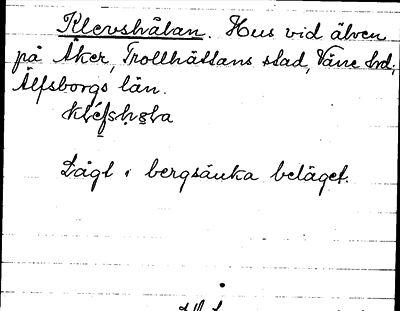 Klevshålan. Hus vid älven
på Åker, Trollhättans stad, Väne hd,
Älfsborgs län.
Lågt i bergsänka beläget.